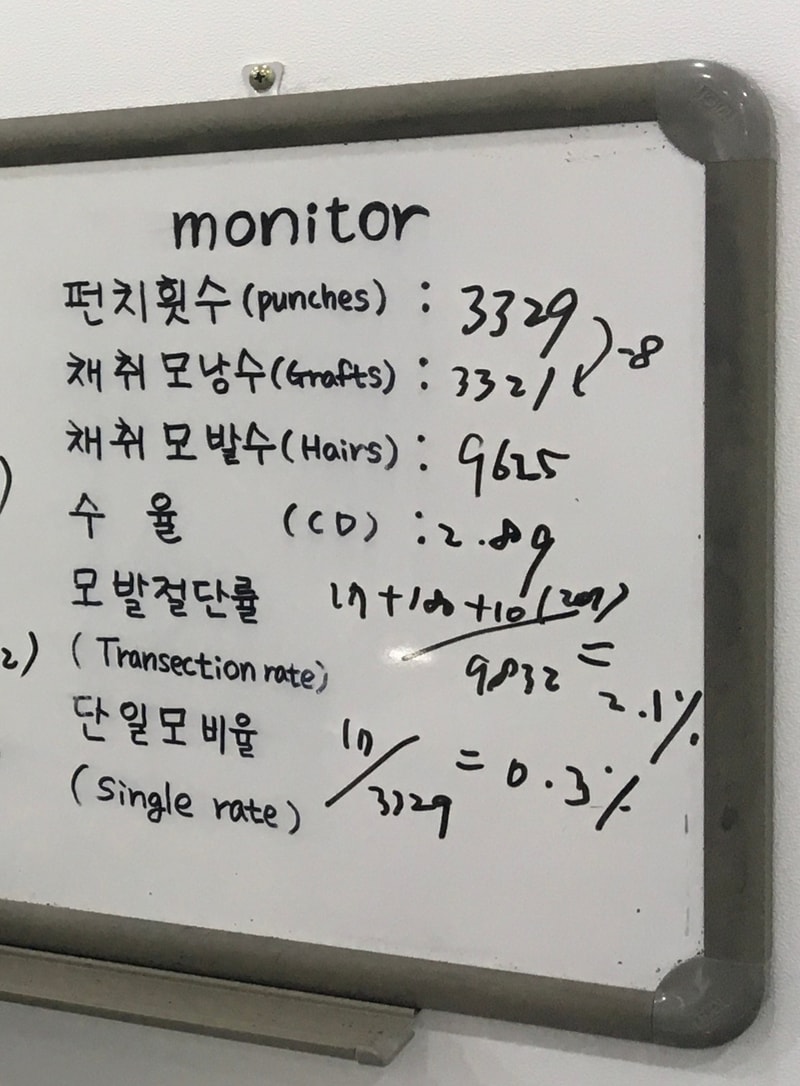 monitor
펀치횟수(punches) : 3329
-8
채취모낭수(Grafts) : 3321
채취모발수(Hairs) : 9625
수율 (CD) : 2.89
모발절단률 17+180+10(207)
2) (Transection rate) 9832 = 2.1%
단일모비율 17
(Single rate) / 3329 = 0.3%